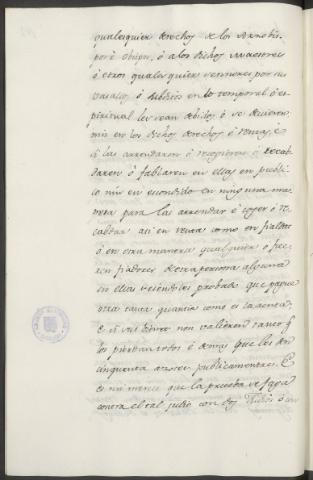 qualesquier derechos de los Arzobis-
pos é Obispos, ó a los dichos Maestres
ó otros quales quier Señores por sus
vasallos ó subditos en lo temporal ó es-
piritual les sean debidos, ó se debieren,
nin en los dichos derechos ó rentas, é
si las arrendaren ó recogieren ó recab-
daren ó fablaren en ellas en publi-
co nin en escondido en ninguna ma-
nera para las arrendar é coger ó re-
cabdar asi en renta como en fialdat
ó en otra manera qualquiera ó fue-
sen fiadores de otra persona alguna
en ellas seiendoles probado que paguen
otra tanta quantia como es la renta;
é si sus bienes non valieren tanto q.
los pierdan todos é demas que les den
cinquenta azotes publicamente. E
es mi merced que la prueba se faga
contra el tal judio con dos Judios ó con